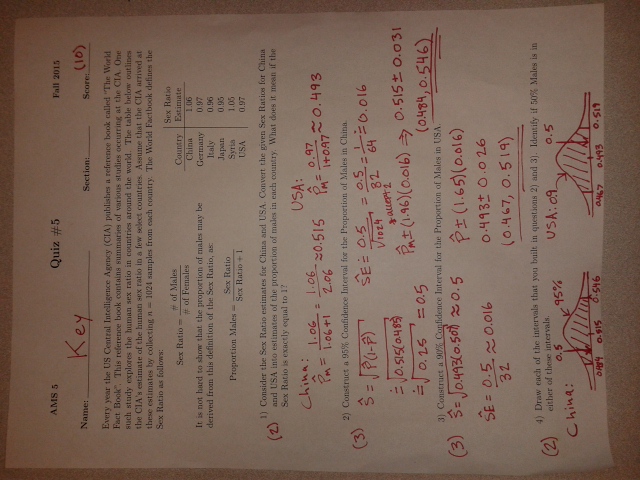 AMS 5 Quiz #5 Fall 2015
Name: Key Section: Score: (10)
Every year the US Central Intelligence Agency (CIA) publishes a reference book called "The World
Fact Book". This reference book contains summaries of various studies occurring at the CIA. One
such study explores the human sex ratio in countries around the world. The table below outlines
the CIA's estimate of the human sex ratio in a few select countries. Assume that the CIA arrived at
these estimates by collecting n = 1024 samples from each country. The World Factbook defines the
Sex Ratio as follows:
Sex Ratio = # of Males / # of Females
It is not hard to show that the proportion of males may be
derived from this definition of the Sex Ratio, as:
Proportion Males = Sex Ratio / Sex Ratio + 1
Country Sex Ratio Estimate
China 1.06
Germany 0.97
Italy 0.96
Japan 0.95
Syria 1.05
USA 0.97
1) Consider the Sex Ratio estimates for China and USA. Convert the given Sex Ratios for China
and USA into estimates of the proportion of males in each country. What does it mean if the
Sex Ratio is exactly equal to 1?
(2)
China: P̂m = 1.06 / 1.06+1 = 1.06 / 2.06 ≈ 0.515
USA: P̂m = 0.97 / 1+0.97 ≈ 0.493
2) Construct a 95% Confidence Interval for the Proportion of Males in China.
(3)
Ŝ = √p̂(1-p̂)
= √0.515(0.485)
= √0.25 = 0.5
SE = 0.5 / √1024 = 0.5 / 32 = 1 / 64 = 0.016
P̂m ± (1.96)(0.016) ⇒ 0.515 ± 0.031
(0.484, 0.546)
3) Construct a 90% Confidence Interval for the Proportion of Males in USA.
(3)
Ŝ = √0.493(0.507) ≈ 0.5
SE = 0.5 / 32 ≈ 0.016
P̂ ± (1.65)(0.016)
0.493 ± 0.026
(0.467, 0.519)
4) Draw each of the intervals that you built in questions 2) and 3). Identify if 50% Males is in
either of these intervals.
(2)
China: 0.5 95%
0.484 0.515 0.546
USA: 0.5
0.467 0.493 0.519